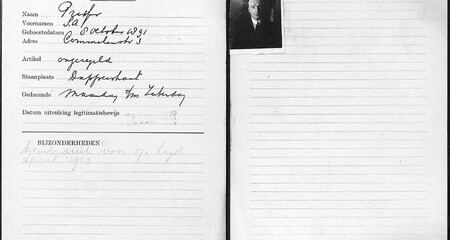 Naam
Voornamen S.A.
Geboortedatum 8 October 1891
Adres Commelinstr 3
Artikel ongeregeld
Staanplaats Dapperstraat
Gedurende Maandag t/m Zaterdag
Datum uitreiking legitimatiebewijs
BIJZONDERHEDEN:
Komt niet voor op lijst
April 1923